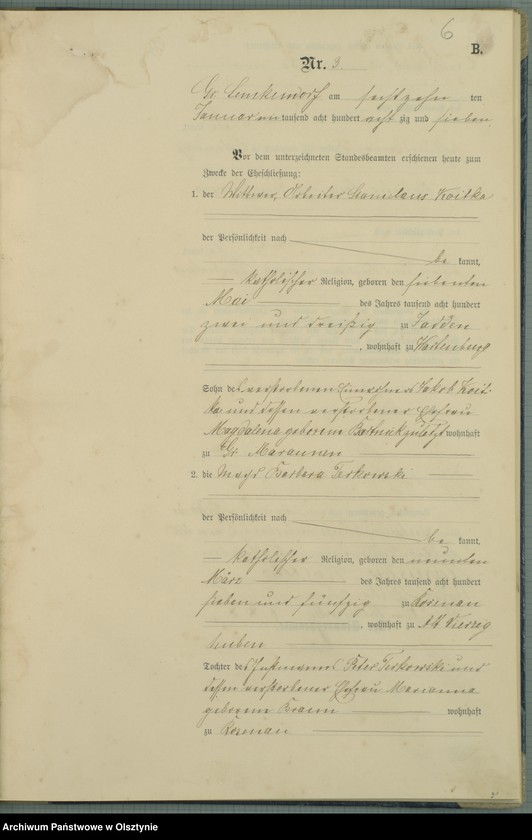 6
B.
Nr. 3
Gr. Lemkendorf am sechszehn ten
Januar ein tausend acht hundert acht zig und sieben
Vor dem unterzeichneten Standesbeamten erschienen heute zum
Zwecke der Eheschließung:
1. der Wittwer, Arbeiter Stanislaus Koitka
der Persönlichkeit nach
be kannt,
katholischer Religion, geboren den siebenten
Mai des Jahres tausend acht hundert
zwei und dreißig zu Jadden
, wohnhaft zu Wartenburg
Sohn des verstorbenen Einwohners Jakob Koit-
ka und dessen verstorbener Ehefrau
Magdalena geborene zuletzt wohnhaft
zu Gr. Maraunen
2. die Magd Barbara Terkowski
der Persönlichkeit nach
be kannt,
katholischer Religion, geboren den neunten
März des Jahres tausend acht hundert
sieben und fünfzig zu
, wohnhaft zu Alt Vierzig
huben
Tochter des Peter Terkowski und
dessen verstorbener Ehefrau Marianna
geborene Braun wohnhaft
zu
Archiwum Państwowe w Olsztynie